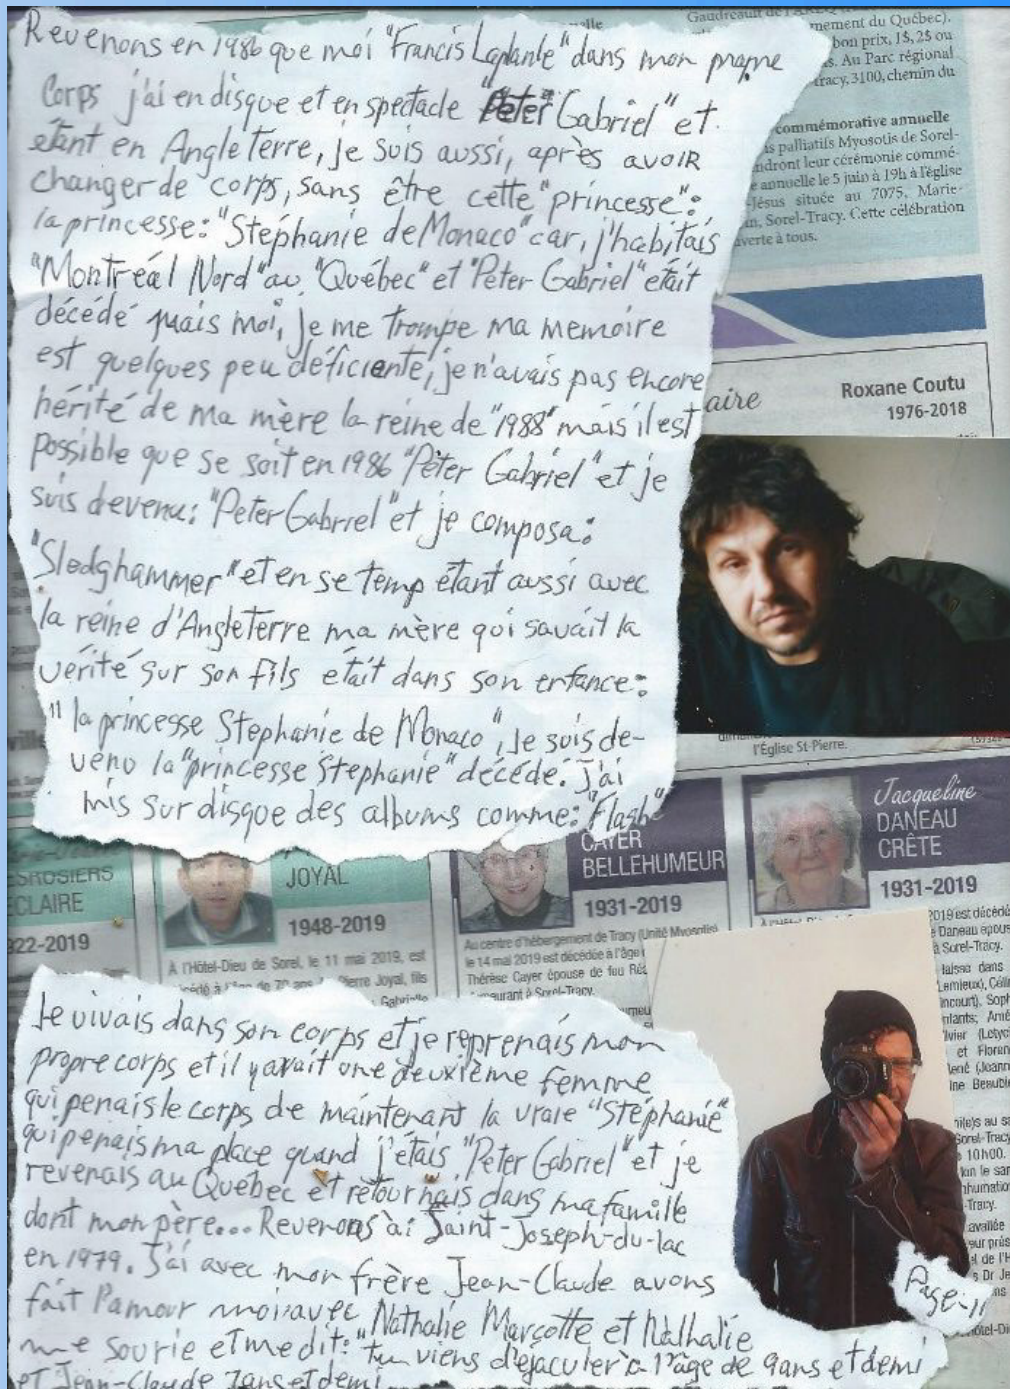 Revenons en 1986 que moi "Francis Laplante" dans mon propre
Corps j'ai en disque et en spectacle "Peter Gabriel" et
étant en Angleterre, je suis aussi, après avoir
changer de corps, sans être cette "princesse":
la princesse: "Stéphanie de Monaco" car, j'habitais
"Montréal Nord" au "Québec" et "Peter Gabriel" était
décédé mais moi, je me trompe ma memoire
est quelques peu déficiente, je n'avais pas encore
hérité de ma mère la reine de "1988" mais il est
possible que se soit en 1986 "Peter Gabriel" et je
suis devenu: "Peter Gabriel" et je composa:
"Sledghammer" et en se temp étant aussi avec
la reine d'Angleterre ma mère qui savait la
vérité sur son fils était dans son enfance:
"la princesse Stephanie de Monaco", Je suis de-
venu la "princesse Stephanie" décédé. J'ai
mis sur disque des albums comme: "Flash"
Je vivais dans son corps et je reprenais mon
propre corps et il y avait une deuxième femme
qui penais le corps de maintenant la vraie "Stéphanie"
qui penais ma place quand j'étais "Peter Gabriel" et je
revenais au Québec et retournais dans ma famille
dont mon père... Revenons à: Saint-Joseph-du-lac
en 1979.
Page-11
mement du Québec).
bon prix, 1$, 2$ ou
s. Au Parc régional
racy, 3100, chemin du
commémorative annuelle
s palliatifs Myosotis de Sorel-
ndront leur cérémonie commé-
e annuelle le 5 juin à 19h à l'église
-Jésus située au 7075, Marie-
n, Sorel-Tracy. Cette célébration
verte à tous.
aire
Roxane Coutu
1976-2018
l'Église St-Pierre.
ESROSIERS
ECLAIRE
922-2019
JOYAL
1948-2019
À l'Hôtel-Dieu de Sorel, le 11 mai 2019, est
CAYER
BELLEHUMEUR
1931-2019
Au centre d'hébergement de Tracy (Unité Myosotis)
le 14 mai 2019 est décédée à l'âge
Thérèse Cayer épouse de feu
Jacqueline
DANEAU
CRÊTE
1931-2019
2019 est décédé
Daneau épous
à Sorel-Tracy.